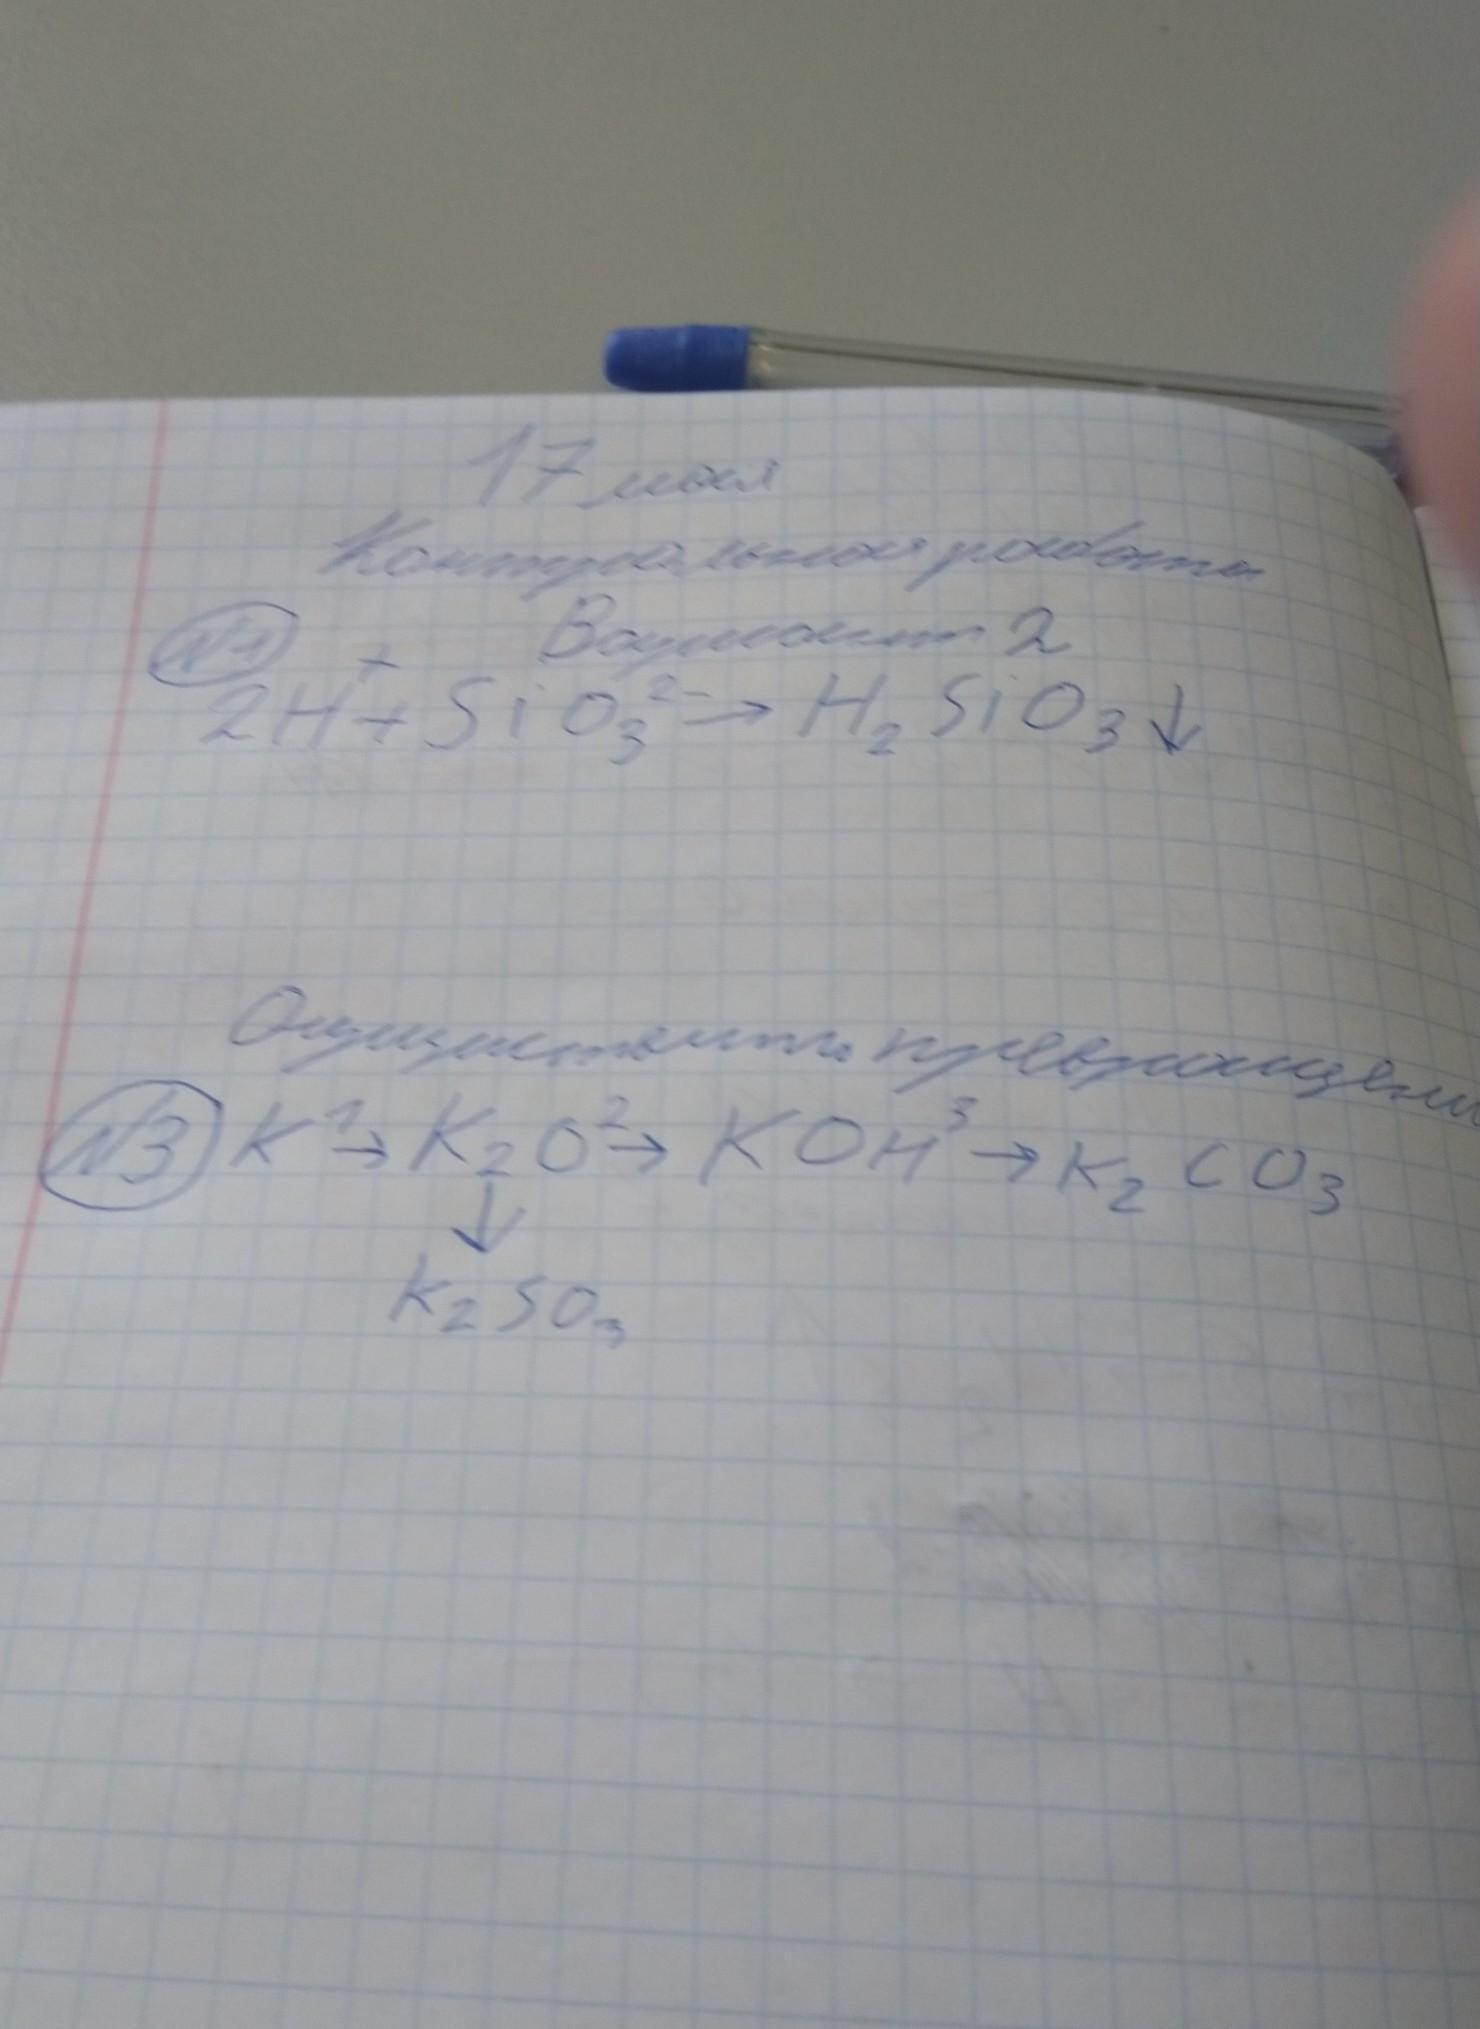 17 мая
Контрольная работа
Вариант 2
№1
2H⁺ + SiO₃²⁻ → H₂SiO₃↓
Осуществить превращени
№3 K ¹→ K₂O ²→ KOH ³→ K₂CO₃
↓
K₂SO₃